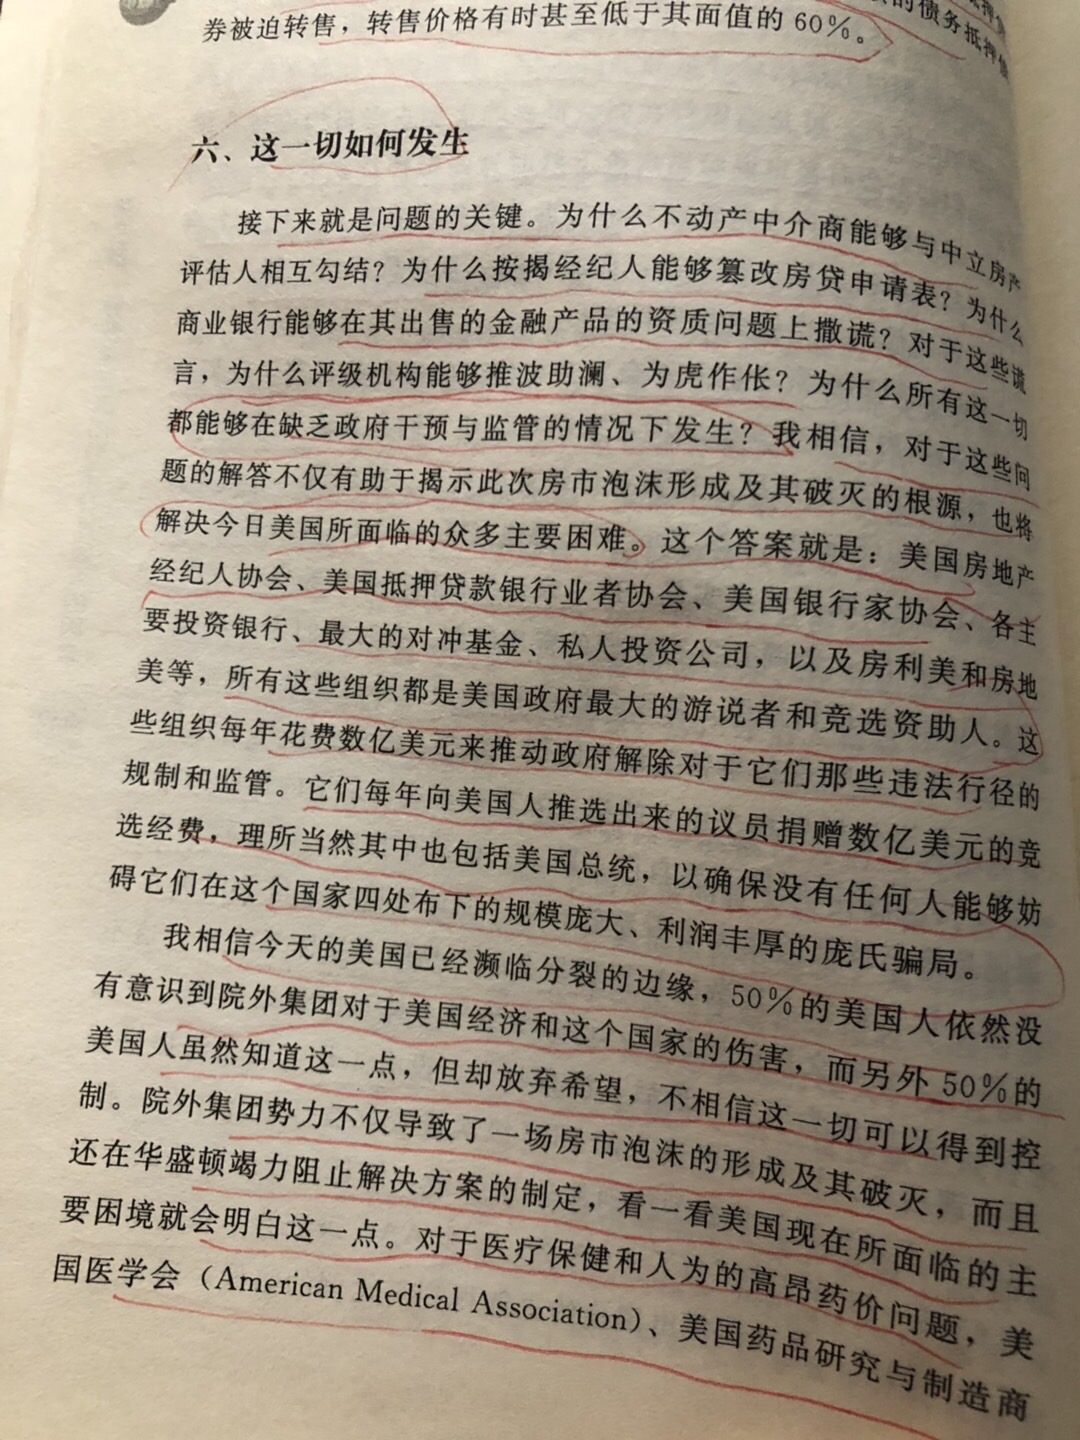 的债务抵押债
券被迫转售，转售价格有时甚至低于其面值的 60%。
六、这一切如何发生
接下来就是问题的关键。为什么不动产中介商能够与中立房产
评估人相互勾结？为什么按揭经纪人能够篡改房贷申请表？为什么
商业银行能够在其出售的金融产品的资质问题上撒谎？对于这些谎
言，为什么评级机构能够推波助澜、为虎作伥？为什么所有这一切
都能够在缺乏政府干预与监管的情况下发生？我相信，对于这些问
题的解答不仅有助于揭示此次房市泡沫形成及其破灭的根源，也将
解决今日美国所面临的众多主要困难。这个答案就是：美国房地产
经纪人协会、美国抵押贷款银行业者协会、美国银行家协会、各主
要投资银行、最大的对冲基金、私人投资公司，以及房利美和房地
美等，所有这些组织都是美国政府最大的游说者和竞选资助人。这
些组织每年花费数亿美元来推动政府解除对于它们那些违法行径的
规制和监管。它们每年向美国人推选出来的议员捐赠数亿美元的竞
选经费，理所当然其中也包括美国总统，以确保没有任何人能够妨
碍它们在这个国家四处布下的规模庞大、利润丰厚的庞氏骗局。
我相信今天的美国已经濒临分裂的边缘，50%的美国人依然没
有意识到院外集团对于美国经济和这个国家的伤害，而另外 50%的
美国人虽然知道这一点，但却放弃希望，不相信这一切可以得到控
制。院外集团势力不仅导致了一场房市泡沫的形成及其破灭，而且
还在华盛顿竭力阻止解决方案的制定，看一看美国现在所面临的主
要困境就会明白这一点。对于医疗保健和人为的高昂药价问题，美
国医学会（American Medical Association）、美国药品研究与制造商